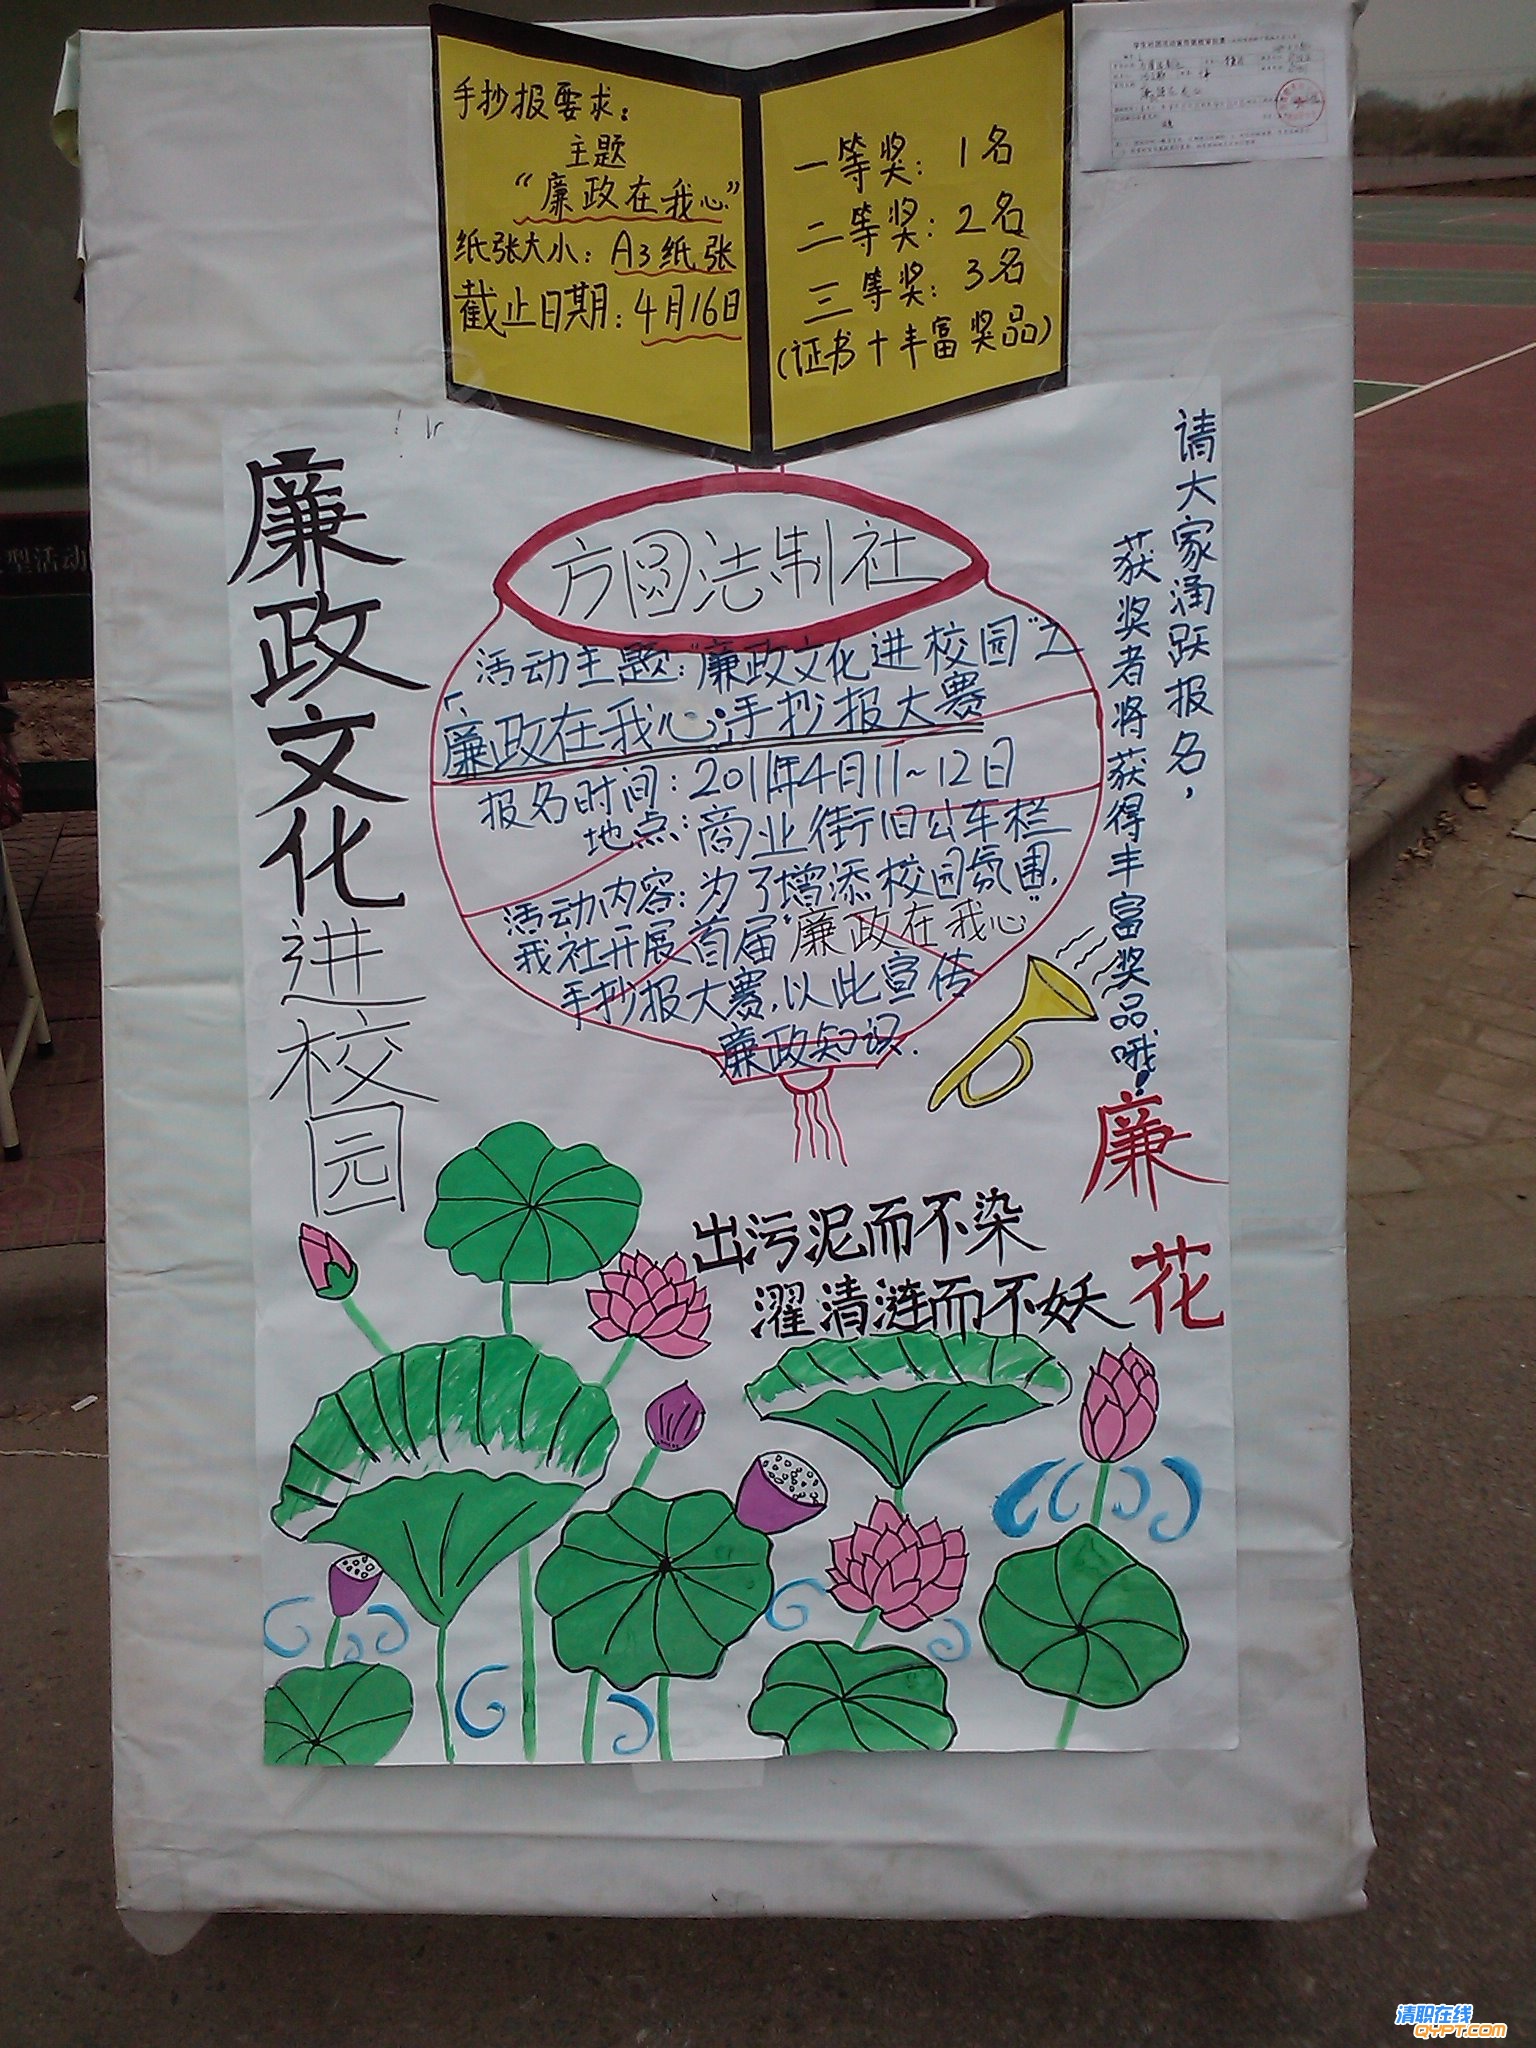 手抄报要求：
主题
“廉政在我心”
纸张大小：A3纸张
截止日期：4月16日
一等奖：1名
二等奖：2名
三等奖：3名
(证书+丰富奖品)
廉政文化进校园
方圆法制社
活动主题：“廉政文化进校园”之
「廉政在我心」手抄报大赛
报名时间：2011年4月11~12日
地点：商业街旧公车栏
活动内容：为了增添校园氛围，
我社开展首届“廉政在我心”
手抄报大赛，以此宣传
廉政知识．
请大家涌跃报名，
获奖者将获得丰富奖品哦！
廉花
出污泥而不染
濯清涟而不妖
型活动
清职在线
QYPT.COM